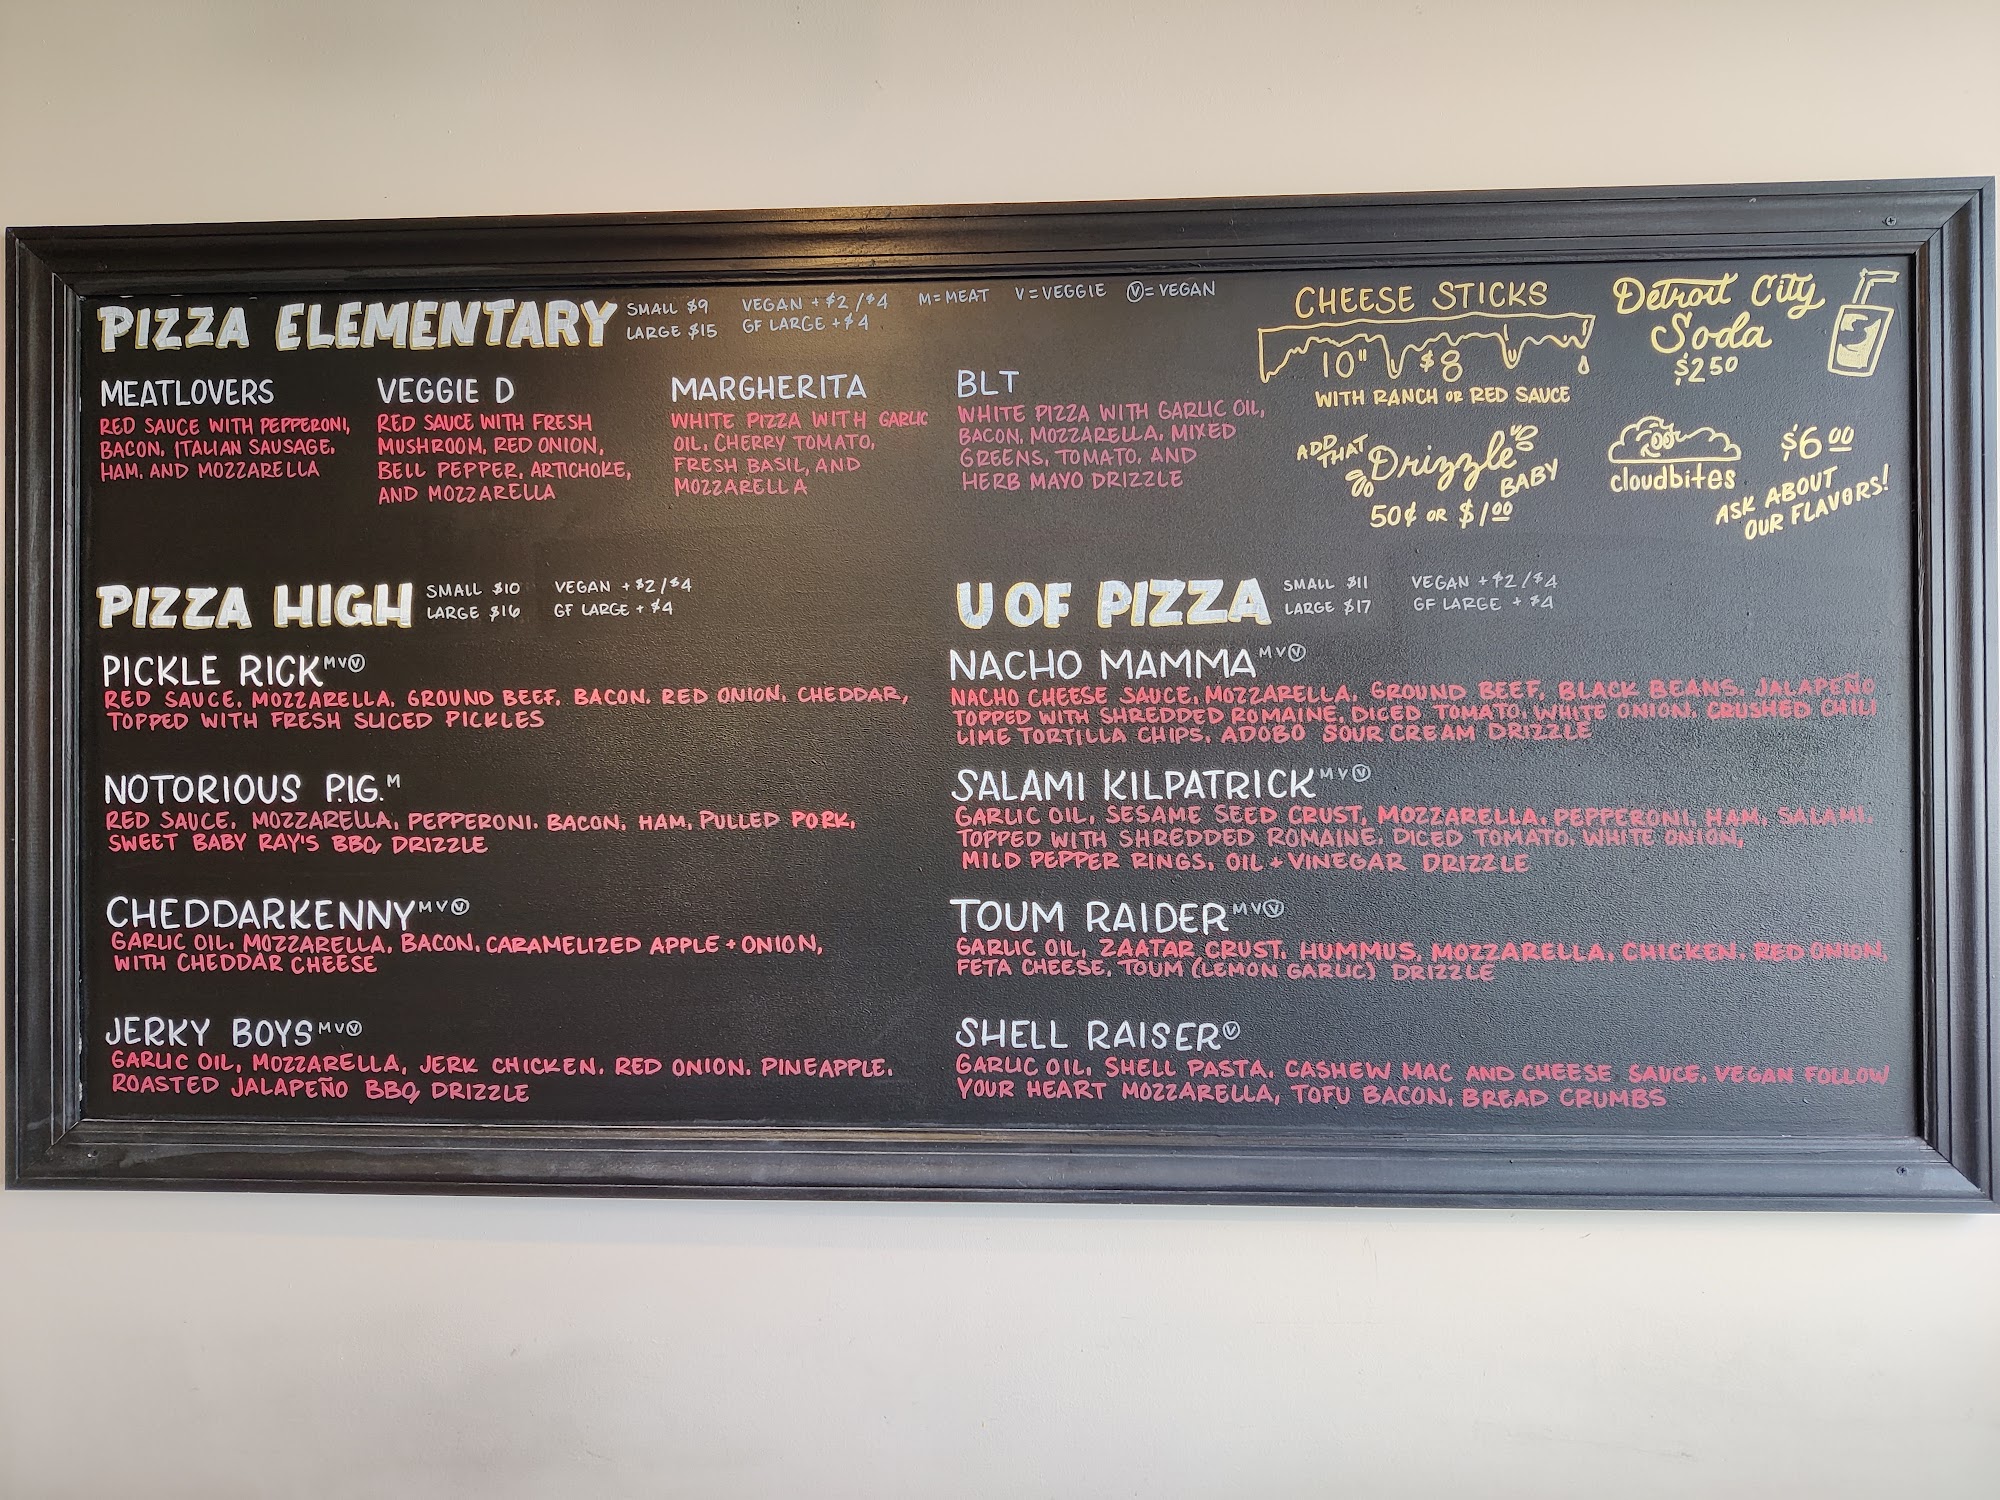 PIZZA ELEMENTARY
SMALL $9
LARGE $15
VEGAN + $2 / $4
GF LARGE + $4
M = MEAT V = VEGGIE Ⓥ = VEGAN
MEATLOVERS
RED SAUCE WITH PEPPERONI,
BACON, ITALIAN SAUSAGE,
HAM, AND MOZZARELLA
VEGGIE D
RED SAUCE WITH FRESH
MUSHROOM, RED ONION,
BELL PEPPER, ARTICHOKE,
AND MOZZARELLA
MARGHERITA
WHITE PIZZA WITH GARLIC
OIL, CHERRY TOMATO,
FRESH BASIL, AND
MOZZARELLA
BLT
WHITE PIZZA WITH GARLIC OIL,
BACON, MOZZARELLA, MIXED
GREENS, TOMATO, AND
HERB MAYO DRIZZLE
CHEESE STICKS
10" $8
WITH RANCH OR RED SAUCE
ADD THAT
Drizzle
BABY
50¢ OR $1.00
Detroit City
Soda
$2.50
cloudbites
$6.00
ASK ABOUT
OUR FLAVORS!
PIZZA HIGH
SMALL $10
LARGE $16
VEGAN + $2 / $4
GF LARGE + $4
PICKLE RICK M V Ⓥ
RED SAUCE, MOZZARELLA, GROUND BEEF, BACON, RED ONION, CHEDDAR,
TOPPED WITH FRESH SLICED PICKLES
NOTORIOUS P.I.G. M
RED SAUCE, MOZZARELLA, PEPPERONI, BACON, HAM, PULLED PORK,
SWEET BABY RAY'S BBQ DRIZZLE
CHEDDARKENNY M V Ⓥ
GARLIC OIL, MOZZARELLA, BACON, CARAMELIZED APPLE + ONION,
WITH CHEDDAR CHEESE
JERKY BOYS M V Ⓥ
GARLIC OIL, MOZZARELLA, JERK CHICKEN, RED ONION, PINEAPPLE,
ROASTED JALAPEÑO BBQ DRIZZLE
U OF PIZZA
SMALL $11
LARGE $17
VEGAN + $2 / $4
GF LARGE + $4
NACHO MAMMA M V Ⓥ
NACHO CHEESE SAUCE, MOZZARELLA, GROUND BEEF, BLACK BEANS, JALAPEÑO
TOPPED WITH SHREDDED ROMAINE, DICED TOMATO, WHITE ONION, CRUSHED CHILI
LIME TORTILLA CHIPS, ADOBO SOUR CREAM DRIZZLE
SALAMI KILPATRICK M V Ⓥ
GARLIC OIL, SESAME SEED CRUST, MOZZARELLA, PEPPERONI, HAM, SALAMI,
TOPPED WITH SHREDDED ROMAINE, DICED TOMATO, WHITE ONION,
MILD PEPPER RINGS, OIL + VINEGAR DRIZZLE
TOUM RAIDER M V Ⓥ
GARLIC OIL, ZAATAR CRUST, HUMMUS, MOZZARELLA, CHICKEN, RED ONION,
FETA CHEESE, TOUM (LEMON GARLIC) DRIZZLE
SHELL RAISER Ⓥ
GARLIC OIL, SHELL PASTA, CASHEW MAC AND CHEESE SAUCE, VEGAN FOLLOW
YOUR HEART MOZZARELLA, TOFU BACON, BREAD CRUMBS